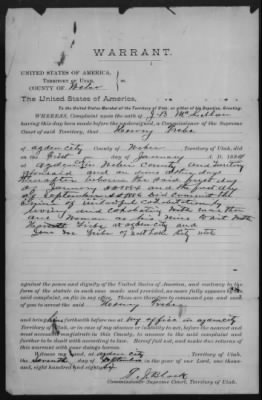 WARRANT.
UNITED STATES OF AMERICA,
TERRITORY OF UTAH,
COUNTY OF Weber
The United States of America,
To the United States Marshal of the Territory of Utah, or either of his Deputies, Greeting:
WHEREAS, Complaint upon the oath of J. B. McLellan
having this day been made before the undersigned, a Commissioner of the Supreme
Court of said Territory, that Henry
of Ogden City County of Weber Territory of Utah, did
on the first day of January A. D. 188
at Ogden City Weber County and Territory
aforesaid and on divers other days
thereafter between the said first day
of January and the first day
of September commit the
crime of unlawful cohabitation by
living and cohabiting with more than
one Woman as his wives to wit with
at Ogden City and
of Salt Lake City
against the peace and dignity of the United States of America, and contrary to the
form of the statute in such case made and provided, as more fully appears in the
said complaint, on file in my office. These are therefore to command you and each
of you to arrest the said Henry
and bring him forthwith before me at my office in Ogden City
Territory of Utah, or in case of my absence or inability to act, before the nearest or most
accessible magistrate in this County, to answer to the said complaint and
further to be dealt with according to law. Herof fail not, and make due return of
this warrant with your doings hereon.
Witness my hand, at Ogden City Territory of Utah,
the seventh day of September in the year of our Lord, one thousand,
eight hundred and eighty
Commissioner Supreme Court, Territory of Utah.